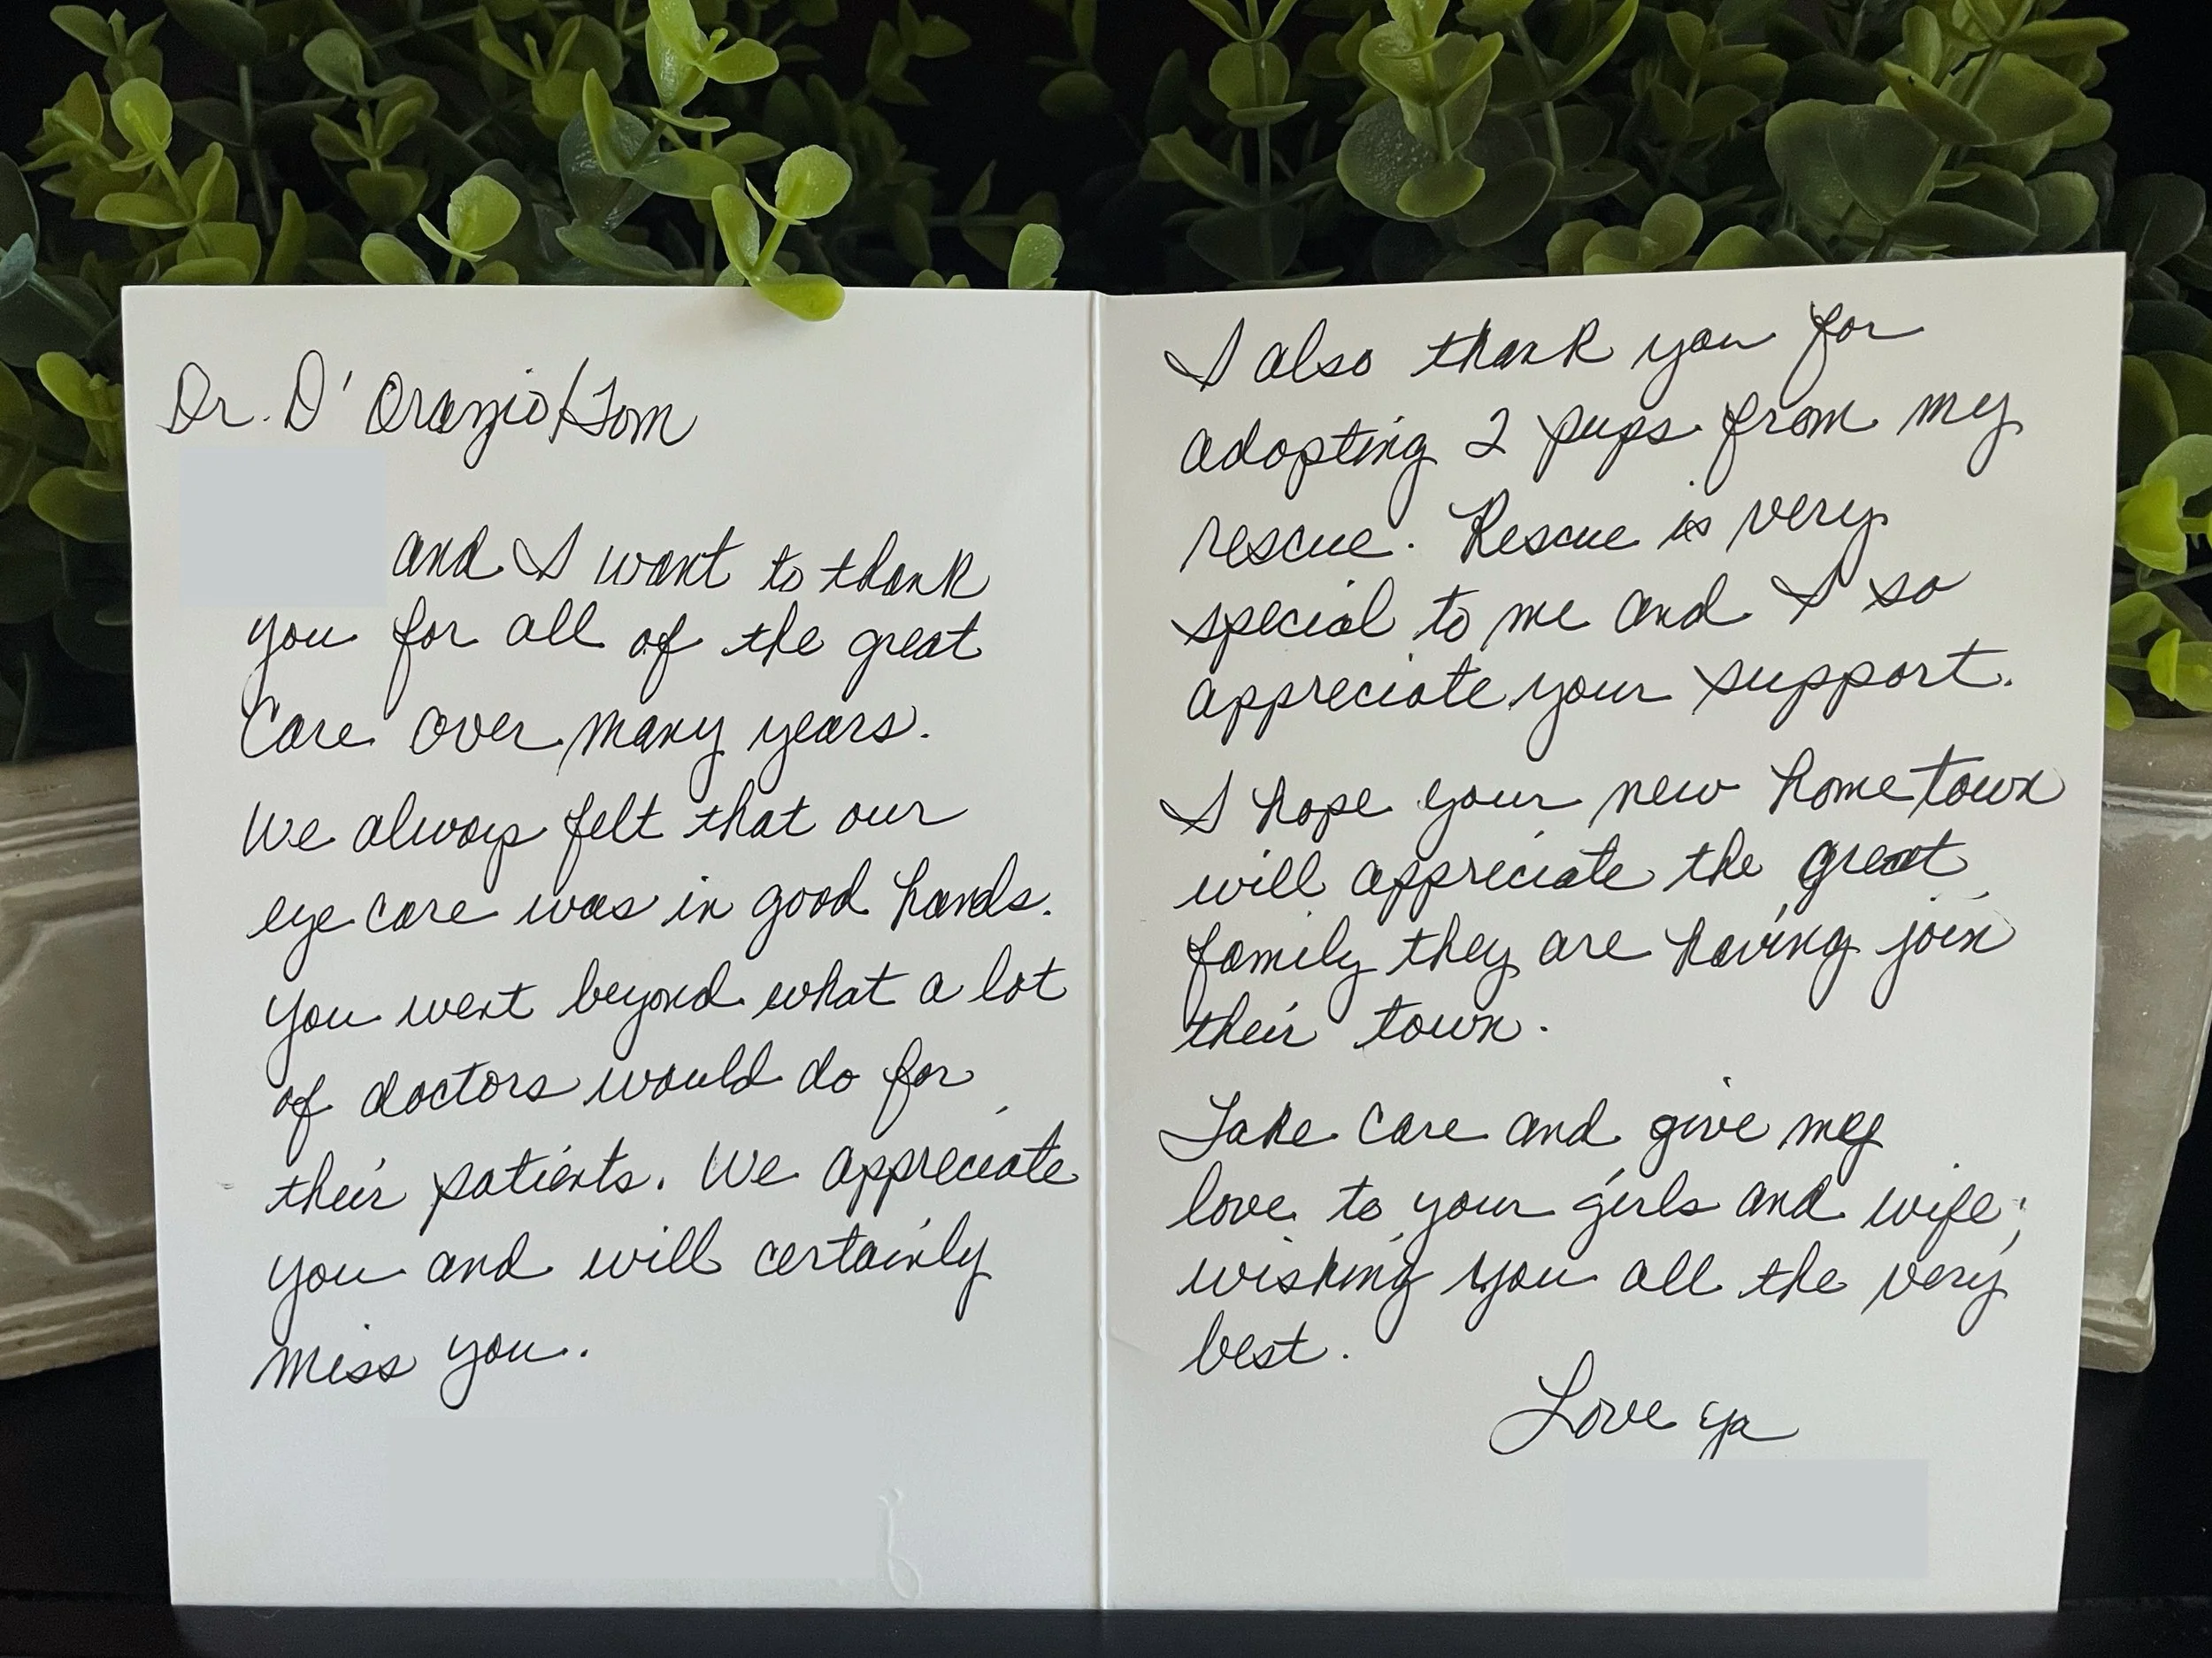 Dr. D'Orazio/Tom
and I want to thank
you for all of the great
Care over many years.
We always felt that our
eye care was in good hands.
You went beyond what a lot
of doctors would do for
their patients. We appreciate
you and will certainly
miss you.
I also thank you for
adopting 2 pups from my
rescue. Rescue is very
special to me and I so
appreciate your support.
I hope your new home town
will appreciate the great
family they are having join
their town.
Take Care and give my
love to your girls and wife;
wishing you all the very
best.
Love ya